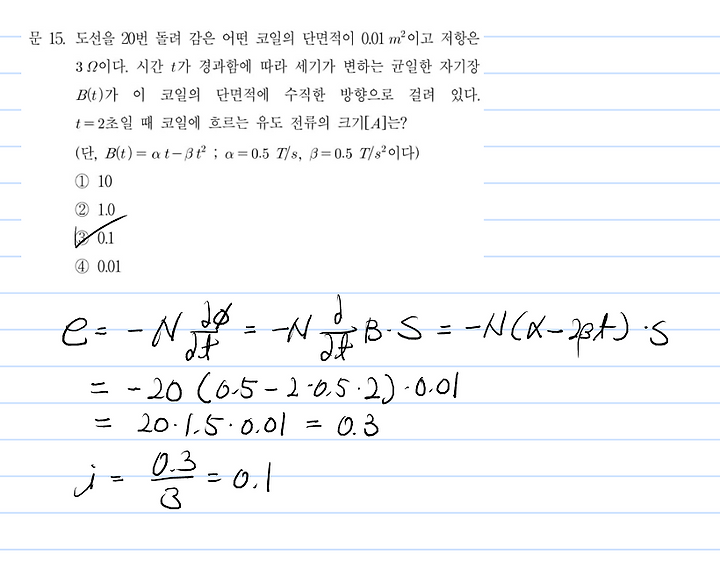 문 15. 도선을 20번 돌려 감은 어떤 코일의 단면적이 0.01 m²이고 저항은
3 Ω이다. 시간 t가 경과함에 따라 세기가 변하는 균일한 자기장
B(t)가 이 코일의 단면적에 수직한 방향으로 걸려 있다.
t=2초일 때 코일에 흐르는 유도 전류의 크기[A]는?
(단, B(t)=αt−βt² ; α=0.5 T/s, β=0.5 T/s²이다)
① 10
② 1.0
③ 0.1
④ 0.01
e = -N ∂φ/∂t = -N ∂/∂t B·S = -N(α-2βt)·S
= -20 (0.5-2·0.5·2)·0.01
= 20·1.5·0.01 = 0.3
i = 0.3/3 = 0.1